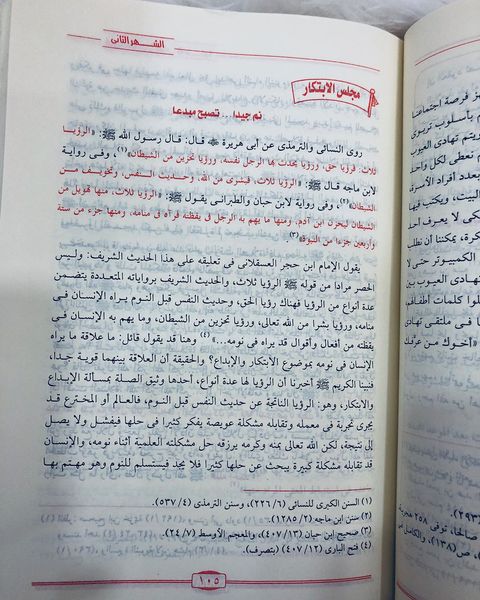 الشهر الثانى
مجلس الابتكار
نم جيدا... تصبح مبدعا
روى النسائى والترمذى عن أبى هريرة قال: قال رسول الله ﷺ: «الرؤيا
ثلاث: فرؤيا حق، ورؤيا يحدث بها الرجل نفسه، ورؤيا تحزين من الشيطان»(١)، وفى رواية
لابن ماجه قال ﷺ: «الرؤيا ثلاث، فبشرى من الله، وحديث النفس، وتخويف من
الشيطان»(٢)، وفى رواية لابن حبان والطبرانى يقول ﷺ: «الرؤيا ثلاث، منها تهويل من
الشيطان ليحزن ابن آدم، ومنها ما يهم به الرجل فى يقظته فرآه فى منامه، ومنها جزء من ستة
وأربعين جزءا من النبوة»(٣).
يقول الإمام ابن حجر العسقلانى فى تعليقه على هذا الحديث الشريف: وليس
الحصر مرادا من قوله ﷺ الرؤيا ثلاث، والحديث الشريف برواياته المتعددة يتضمن
عدة أنواع من الرؤيا فهناك رؤيا الحق، وحديث النفس قبل النوم يراه الإنسان فى
منامه، ورؤيا بشرا من الله تعالى، ورؤيا تحزين من الشيطان، وما يهم به الإنسان فى
يقظته من أفعال وأقوال قد يراه فى نومه...»(٤) وهنا قد يقول قائل: ما علاقة ما يراه
الإنسان فى نومه بموضوع الابتكار والإبداع؟ والحقيقة أن العلاقة بينهما قوية جدا،
فنبينا الكريم ﷺ أخبرنا أن الرؤيا لها عدة أنواع، أحدها وثيق الصلة بمسألة الإبداع
والابتكار، وهو: الرؤيا الناتجة عن حديث النفس قبل النوم، فالعالم أو المخترع قد
يجرى تجربة فى معمله وتقابله مشكلة عويصة يفكر كثيرا فى حلها فيفشل ولا يصل
إلى نتيجة، لكن الله تعالى بمنه وكرمه يرزقه حل مشكلته العلمية أثناء نومه، والإنسان
قد تقابله مشكلة كبيرة يبحث عن حلها كثيرا فلا يجد فيستسلم للنوم وهو مهتم بها
(١) السنن الكبرى للنسائى (٢٢٦/٦)، وسنن الترمذى (٥٣٧/٤).
(٢) سنن ابن ماجه (١٢٨٥/٢).
(٣) صحيح ابن حبان (٤٠٧/١٣)، والمعجم الأوسط (٢٤/٧).
(٤) فتح البارى (٤٠٧/١٢) (بتصرف).
١٠٥